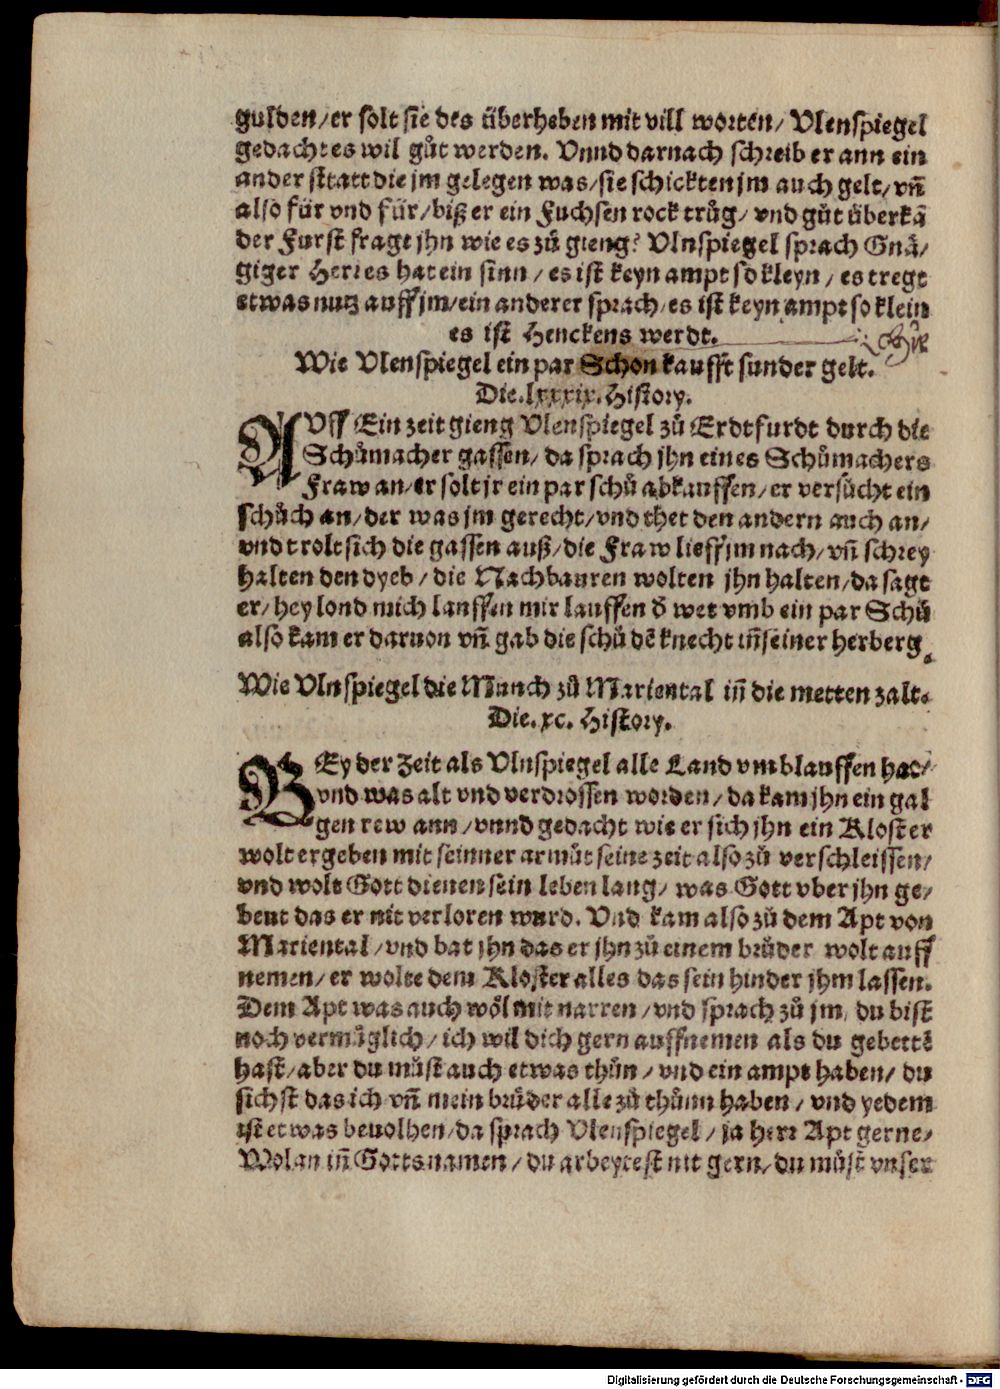 gulden/er solt sie des überheben mit vill worten/ Vlenspiegel
gedacht es wil gůt werden. Vnnd darnach schreib er ann ein
ander sttatt die jm gelegen was/sie schickten jm auch gelt/vñ
also für vnd für/biß er ein Fuchsen rock trůg/ vnd gůt überkã
der Furst fragt jhn wie es zů gieng? Vlnspiegel sprach Gnä/
giger Herr es hat ein sinn/ es ist keyn ampt so kleyn/ es tregt
etwas nutz auff jm/ein anderer sprach/es ist keyn ampt so klein
es ist Henckens werdt.
Wie Vlenspiegel ein par Schon kaufft sunder gelt.
Die.lxxxix.History.
AVff Ein zeit gieng Vlenspiegel zů Erdtfurdt durch die
Schůmacher gassen/ da sprach jhn eines Schůmachers
Fraw an/er solt jr ein par schů abkauffen/er versůcht ein
schůch an/der was jm gerecht/vnd thet den andern auch an/
vnd trolt sich die gassen auß/die Fraw lieff jm nach/vñ schrey
halten den dyeb/ die Nachbauren wolten jhn halten/da sagt
er/hey lond mich lauffen mir lauffen d̃ wet vmb ein par Schů
also kam er daruon vñ gab die schů dẽ knecht iñ seiner herberg.
Wie Vlnspiegel die Munch zů Mariental iñ die metten zalt.
Die.xc. History.
BEy der Zeit als Vlnspiegel alle Land vmblauffen hat/
vnd was alt vnd verdrossen worden/da kam jhn ein gal
gen rew ann/vnnd gedacht wie er sich jhn ein Kloster
wolt ergeben mit seinner armůt seine zeit also zů verschleissen/
vnd wolt Gott dienen sein leben lang/ was Gott vber jhn ge/
beut das er nit verloren wurd. Vnd kam also zů dem Apt von
Mariental/vnd bat jhn das er jhn zů einem brůder wolt auff
nemen/er wolte dem Kloster alles das sein hinder jhm lassen.
Dem Apt was auch wöl mit narren/vnd sprach zů jm/ du bist
noch vermüglich/ich wil dich gern auffnemen als du gebettẽ
hast/aber du můst auch etwas thůn/vnd ein ampt haben/ du
sichst das ich vñ mein brůder alle zů thůnn haben/ vnd yedem
ist etwas beuolhen/da sprach Vlenspiegel/ ja herr Apt gerne/
Wolan iñ Gotts namen/du arbeytest nit gern/du můst vnser
Digitalisierung gefördert durch die Deutsche Forschungsgemeinschaft - DFG